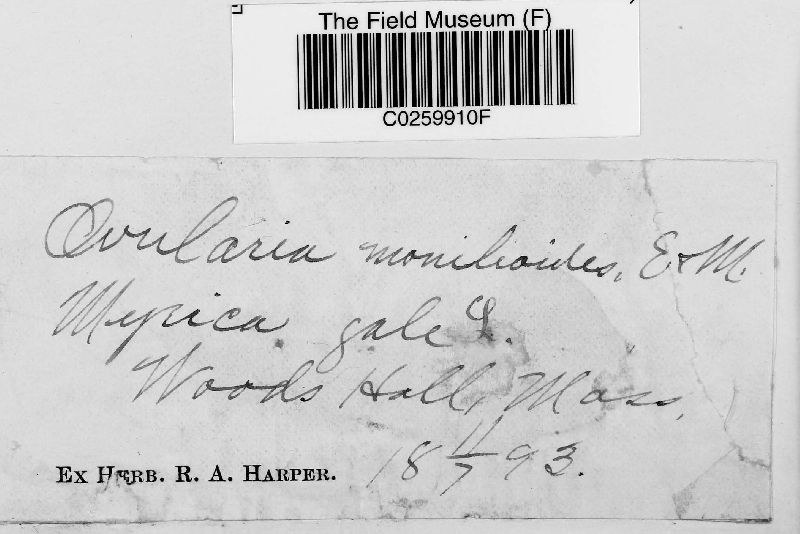 The Field Museum (F)
C0259910F
Ovularia monilioides, E&M.
Myrica gale L.
Woods Holl, Mass.
Ex Herb. R. A. Harper. 18 11/7 93.